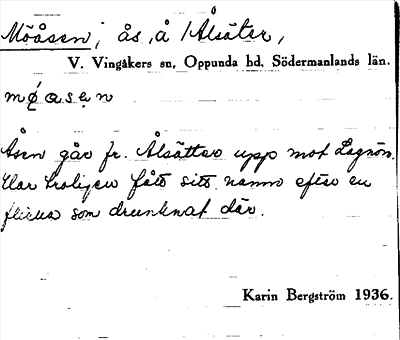 Möåsen, ås, å /Ålsäter,
V. Vingåkers sn, Oppunda hd, Södermanlands län.
møasen
Åsen går fr. Ålsätter upp mot Lagnön.
Har troligen fått sitt namn efter en
flicka som drunknat där.
Karin Bergström 1936.